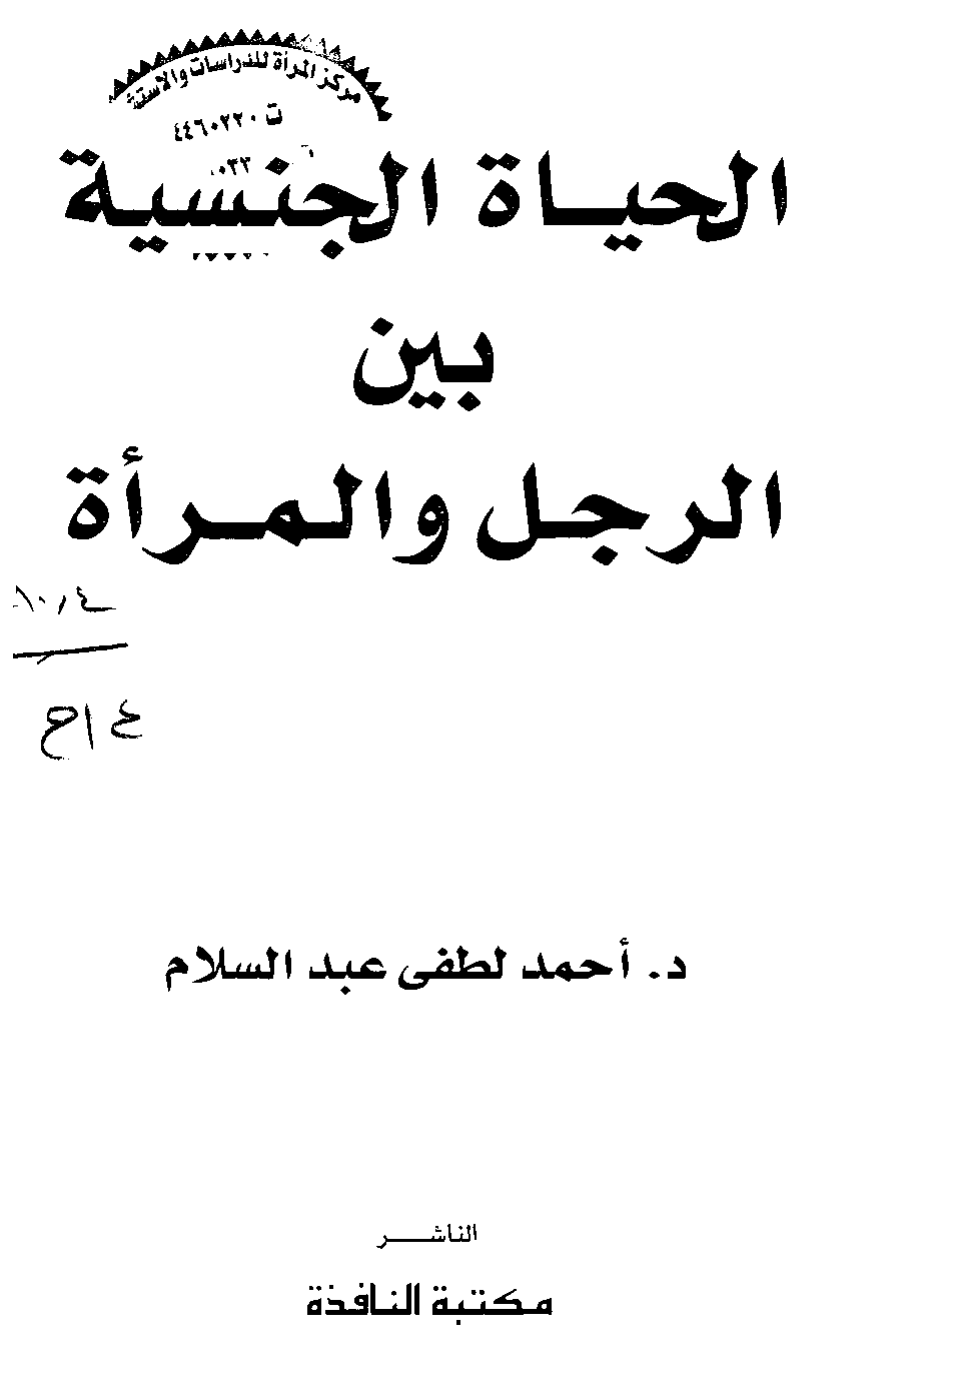 مركز المرأة للدراسات والاستش
ت ٤٤٦٠٢٢٠
الحياة الجنسية
بين
الرجل والمرأة
ع ا ح
د. أحمد لطفى عبد السلام
الناشر
مكتبة النافذة